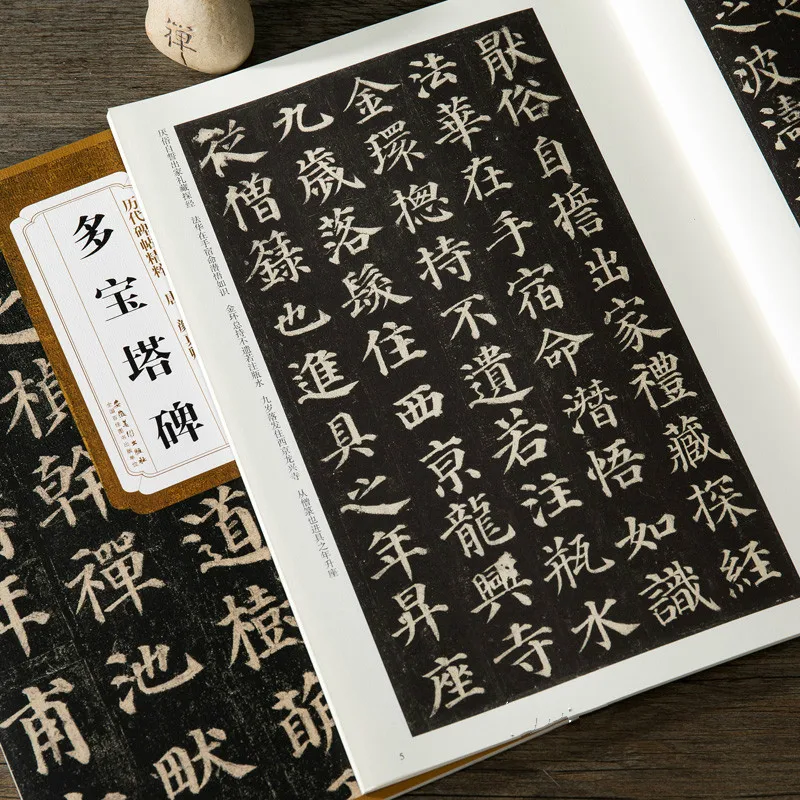 禅
厭俗自誓出家禮藏探經
法華在手宿命潛悟如識
金環揔持不遺若注瓶水
九歲落髮住西京龍興寺
從僧籙也進具之年昇座
厌俗自誓出家礼藏探经 法华在手宿命潜悟如识 金环总持不遗若注瓶水 九岁落发住西京龙兴寺 从僧箓也进具之年升座
5
之波濤
之
历代碑帖精粹
多宝塔碑
安徽美术出版社
全国百佳图书出版单位
道樹萌
楨幹禪池畎
年甫